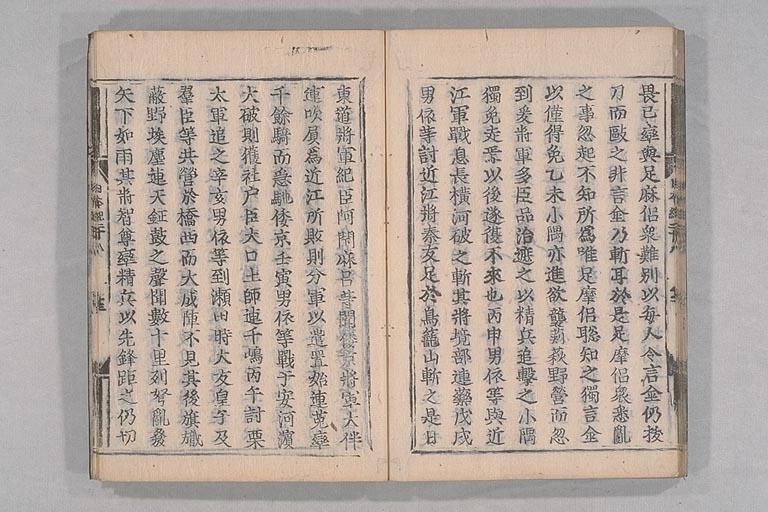 畏已率與足麻侶衆難別以每人令言金仍拔
刀而毆之非言金乃斬耳於是足摩侶衆悉亂
之事忽起不知所爲唯足摩侶聡知之獨言金
以僅得免乙未小隅亦進欲襲莿萩野營而忽
到爰將軍多臣品治遮之以精兵追擊之小隅
獨免走焉以後遂復不來也丙申男依等與近
江軍戰息長橫河破之斬其將境部連藥戊戌
男依等討近江將秦友足於鳥籠山斬之是日
東道將軍紀臣阿閉麻呂等聞倭京將軍大伴
連吹屓爲近江所敗則分軍以遣置始連菟率
千餘騎而急馳倭京壬寅男依等戰于安河濱
大破則獲社戸臣大口土師連千嶋丙午討栗
太軍追之辛亥男依等到瀬田時大友皇子及
羣臣等共營於橋西而大成陣不見其後旗旘
蔽野埃塵連天鉦鼓之聲聞數十里列弩亂發
矢下如雨其將智尊率精兵以先鋒距之仍切